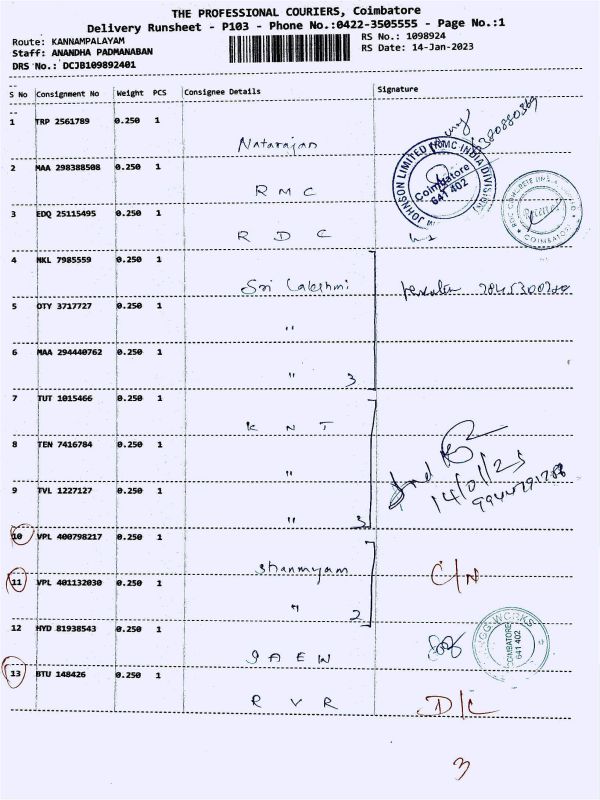 THE PROFESSIONAL COURIERS, Coimbatore
Delivery Runsheet - P103 - Phone No.:0422-3505555 - Page No.:1
Route: KANNAMPALAYAM
Staff: ANANDHA PADMANABAN
DRS No.: DCJB109892401
RS No.: 1098924
RS Date: 14-Jan-2023
S No Consignment No Weight PCS Consignee Details Signature
1 TRP 2561789 0.250 1
Natarajan
2 MAA 298388508 0.250 1
RMC
JOHNSON LIMITED RMC INDIA DIVISION
Coimbatore
641 402
3 EDQ 25115495 0.250 1
RDC
COIMBATORE
4 NKL 7985559 0.250 1
Sri Lakshmi
5 OTY 3717727 0.250 1
"
6 MAA 294440762 0.250 1
" 3
7 TUT 1015466 0.250 1
KNT
8 TEN 7416784 0.250 1
"
14/01/23
9 TVL 1227127 0.250 1
" 3
10 VPL 400798217 0.250 1
Shanmyam
C/N
11 VPL 401132030 0.250 1
" 2
12 HYD 81938543 0.250 1
COIMBATORE
641 402
13 BTU 148426 0.250 1
RVR
D/C
3